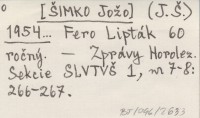 [ŠIMKO Jožo] (J.Š.)
1954... Fero Lipták 60
ročný. — Zprávy Horolez.
Sekcie SLVTVŠ 1, nr 7-8:
266-267.
BJ/046/2633